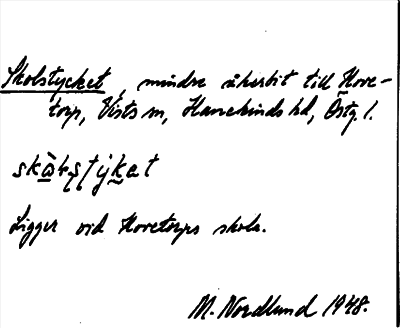 Skolstycket, mindre åkerbit till Hove-
torp, Vists sn, Hanekinds hd, Östg. l.
skὰɫʂtẏket
Ligger vid Hovetorps skola.
M. Nordlund 1948.